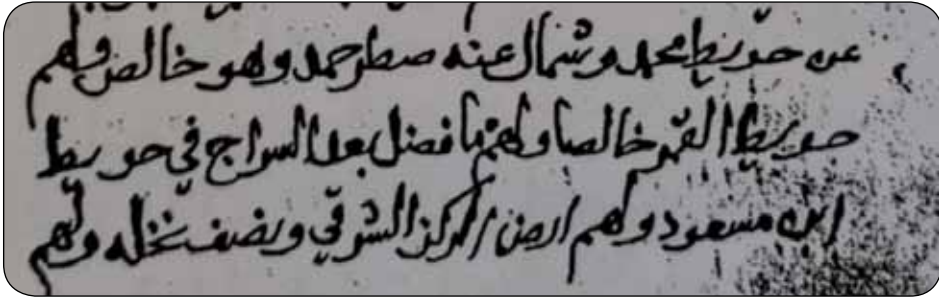 عن حويط محمد وشمال عنه صطر حمد وهو خالص ولهم
حويط القمر خالصا ولهم ما فضل بعد السراج في حويط
ابن مسعود ولهم ارض المركز الشرقي ونصف نخله ولهم